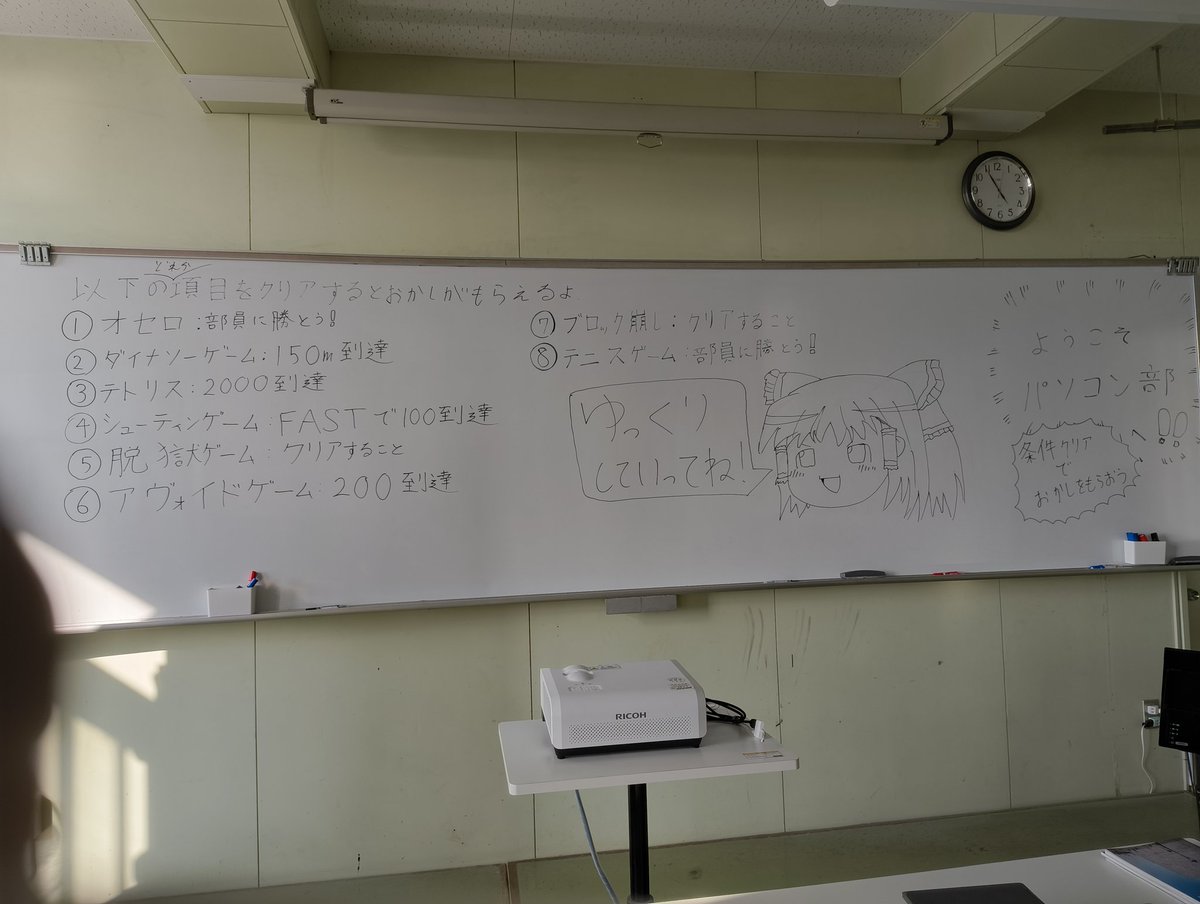 以下のどれか項目をクリアするとおかしがもらえるよ
① オセロ:部員に勝とう!
② ダイナソーゲーム:150m到達
③ テトリス:2000到達
④ シューティンゲーム:FASTで100到達
⑤ 脱獄ゲーム:クリアすること
⑥ アヴォイドゲーム:200到達
⑦ ブロック崩し:クリアすること
⑧ テニスゲーム:部員に勝とう!
ゆっくり
していってね!
ようこそ
パソコン部
へ!!
条件クリア
で
おかしをもらおう
12
1
2
3
4
5
6
7
8
9
10
11
RICOH